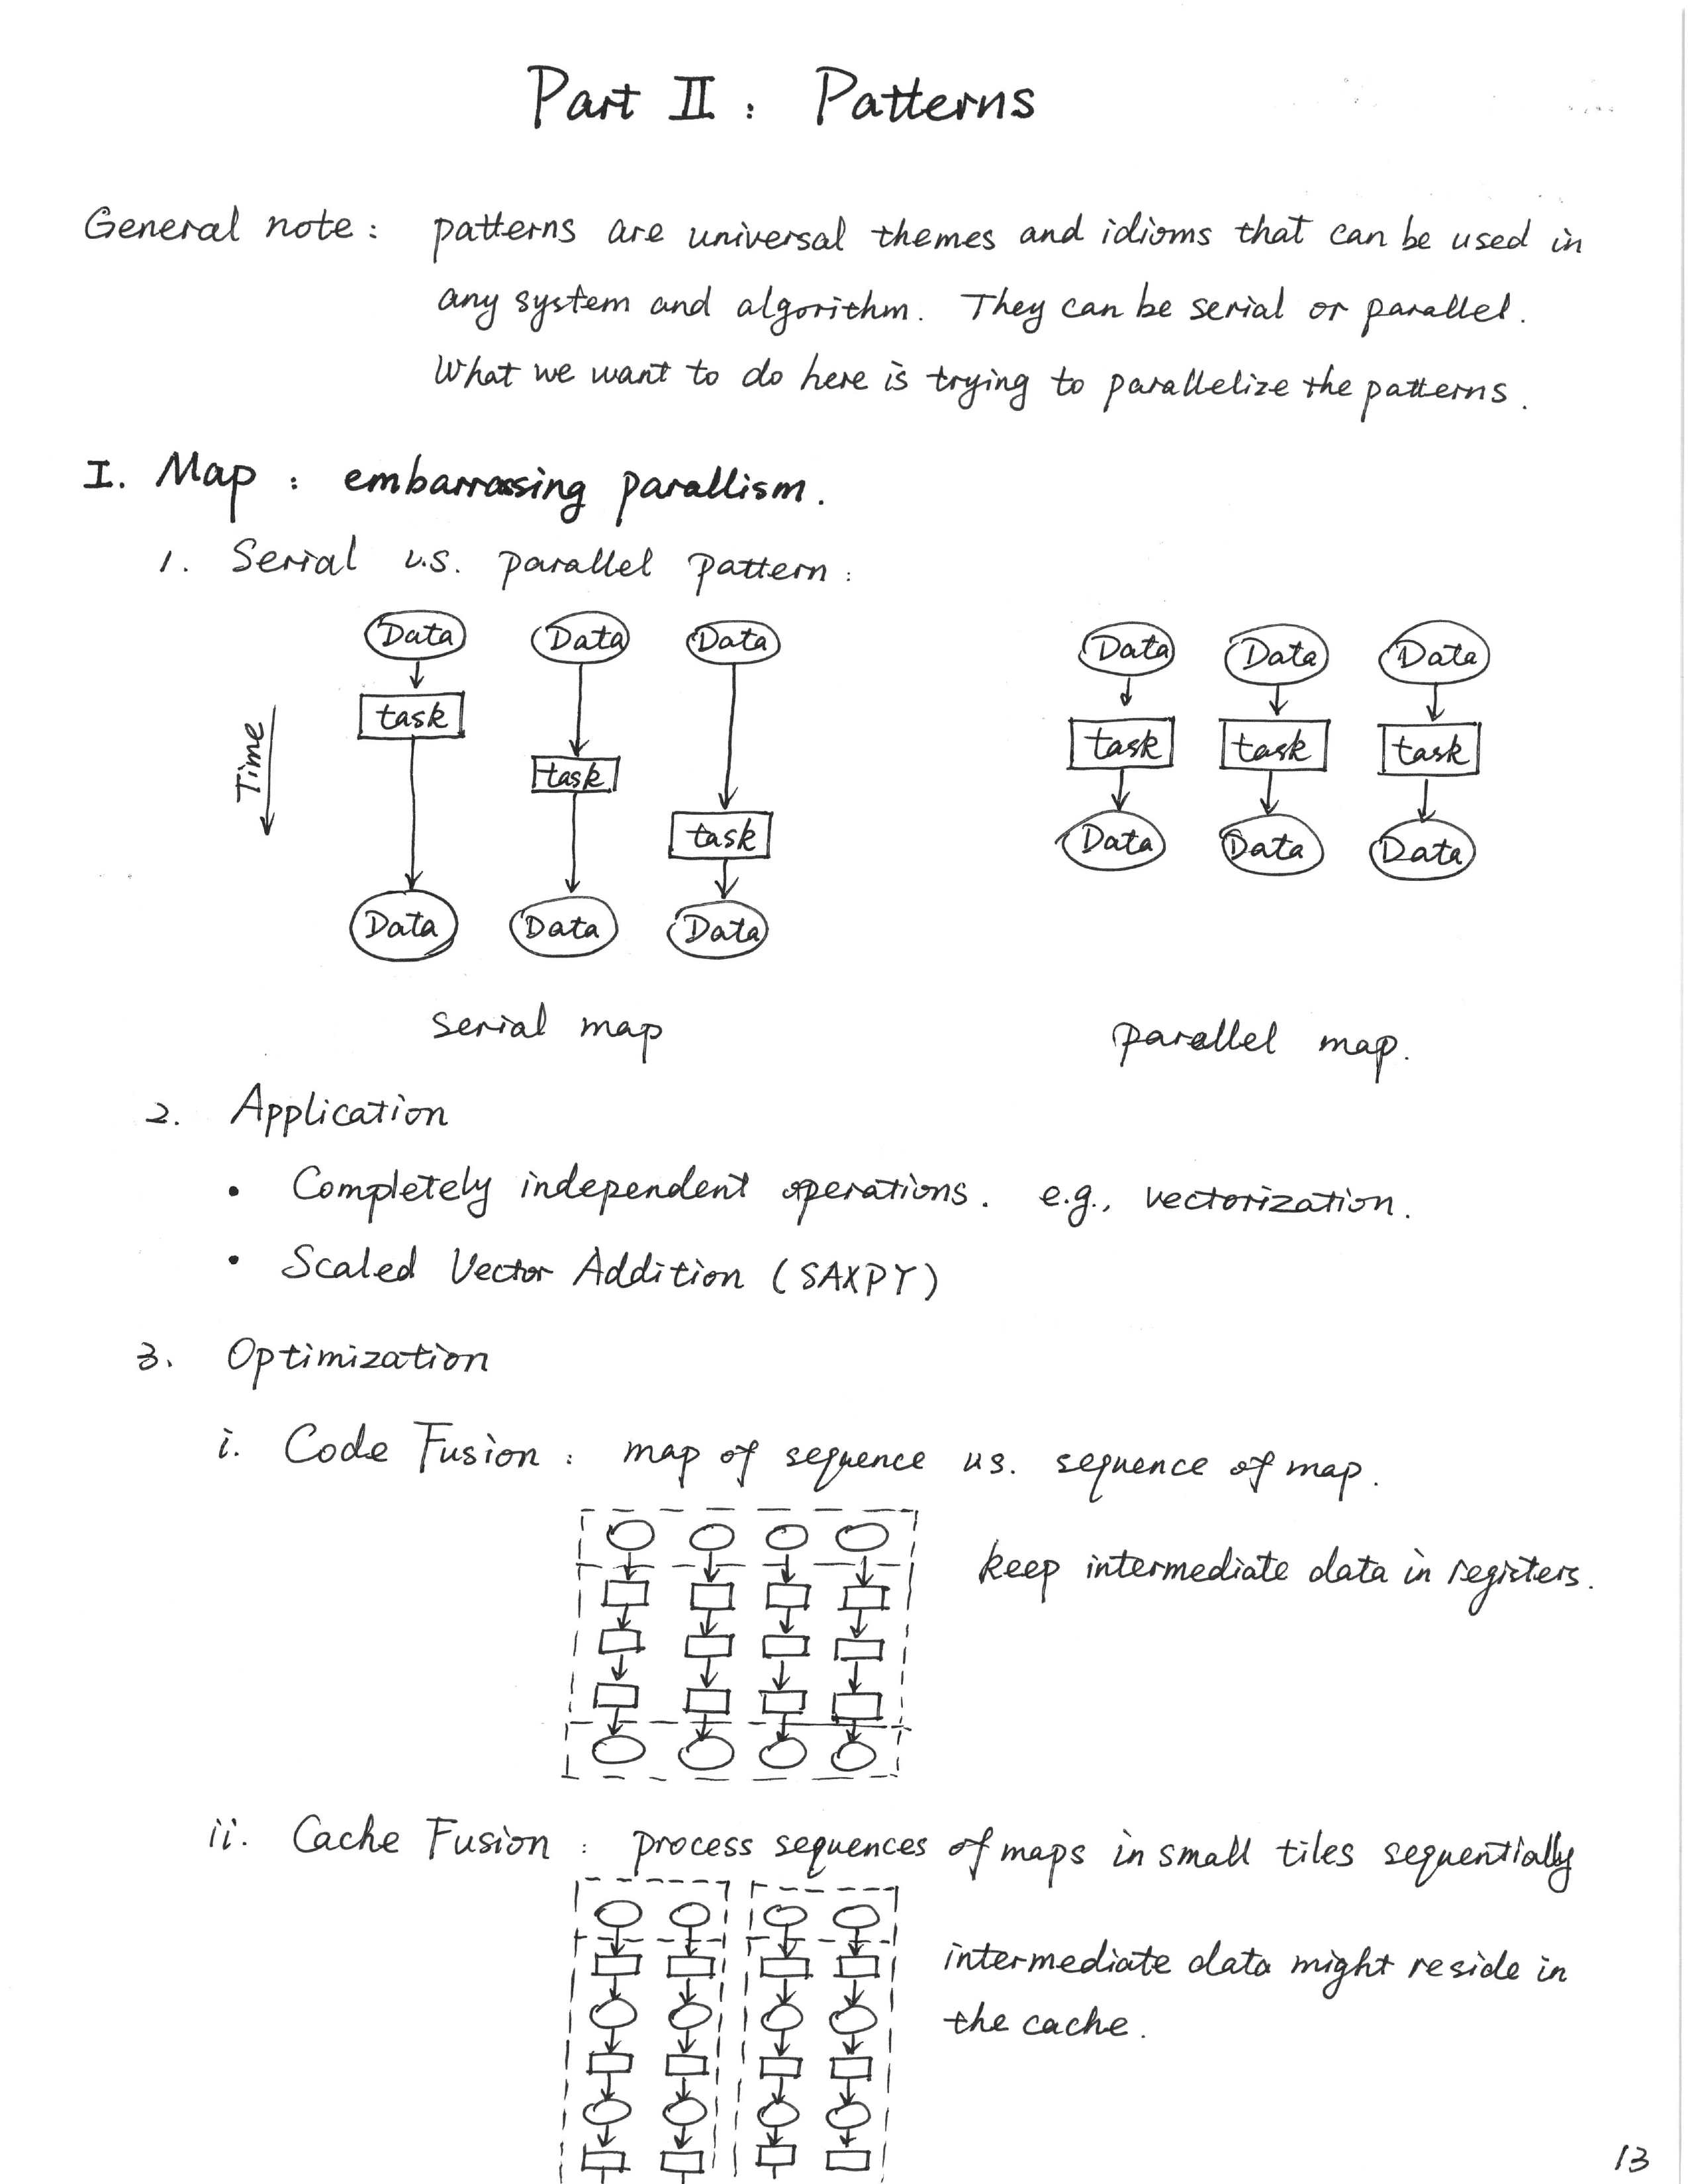 Part II : Patterns
General note : patterns are universal themes and idioms that can be used in
any system and algorithm. They can be serial or parallel.
What we want to do here is trying to parallelize the patterns.
I. Map : embarrassing parallism.
1. Serial v.s. parallel pattern :
Data Data Data Data Data Data
Time
task task task task
task
task
Data Data Data
Data Data Data
serial map parallel map.
2. Application
• Completely independent operations. e.g., vectorization.
• Scaled Vector Addition (SAXPY)
3. Optimization
i. Code Fusion : map of sequence vs. sequence of map.
keep intermediate data in registers.
ii. Cache Fusion : process sequences of maps in small tiles sequentially
intermediate data might reside in
the cache.
13